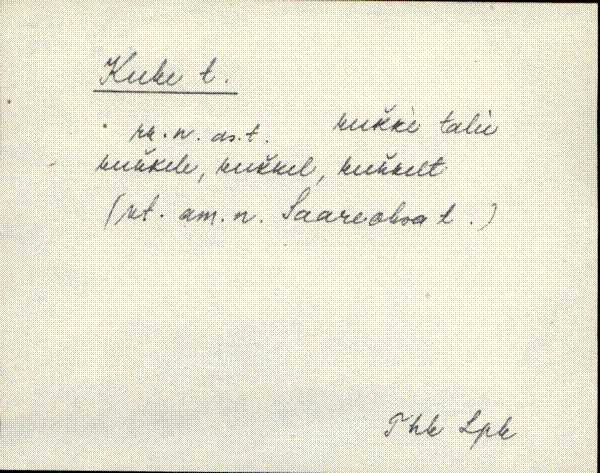 Kuke t.
rh. n. as. t. kukke talu
kukkele, kukkel, kukkelt
(vt. am. n. Saareoksa t.)
Phk Lpk